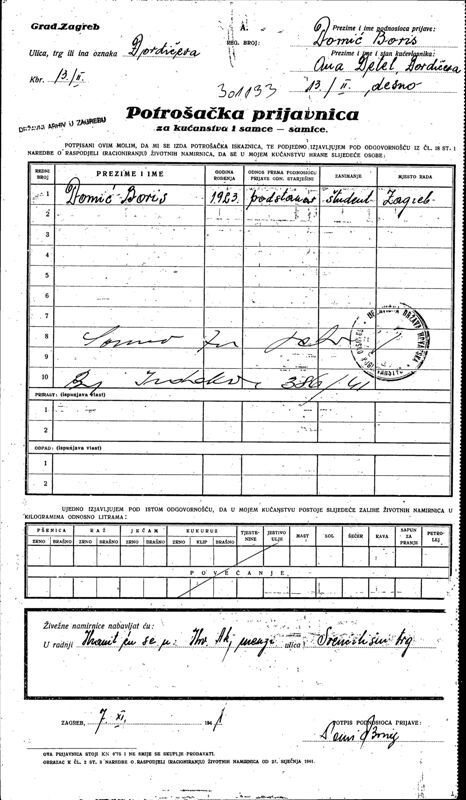 Grad Zagreb
A.
REG. BROJ:
301133
Ulica, trg ili ina oznaka Đorđićeva
Kbr. 13/II.
Prezime i ime podnosioca prijave:
Domić Boris
Prezime i ime i stan kućevlasnika:
Ana Đorđićeva
13/II, desno
DRŽAVNI ARHIV U ZAGREBU
Potrošačka prijavnica
za kućanstva i samce — samice.
POTPISANI OVIM MOLIM, DA MI SE IZDA POTROŠAČKA ISKAZNICA, TE PODJEDNO IZJAVLJUJEM POD ODGOVORNOŠĆU IZ ČL. 18 ST. 1
NAREDBE O RASPODJELI (RACIONIRANJU) ŽIVOTNIH NAMIRNICA, DA SE U MOJEM KUĆANSTVU HRANE SLIJEDEĆE OSOBE:
REDNI BROJ PREZIME I IME GODINA ROĐENJA ODNOS PREMA PODNOSIOCU PRIJAVE ODN. STARJEŠINI ZANIMANJE MJESTO RADA
1 Domić Boris 1923. podstanar student Zagreb
2
3
4
5
6
7
8
9
10 386/41
PRIRAST: (ispunjava vlast)
1
2
OTPAD: (ispunjava vlast)
1
2
UJEDNO IZJAVLJUJEM POD ISTOM ODGOVORNOŠĆU, DA U MOJEM KUĆANSTVU POSTOJE SLIJEDEĆE ZALIHE ŽIVOTNIH NAMIRNICA U
KILOGRAMIMA ODNOSNO LITRAMA:
PŠENICA RAŽ JEČAM KUKURUZ TJESTENINE JESTIVO ULJE MAST SOL ŠEĆER KAVA SAPUN ZA PRANJE PETROLEJ
ZRNO BRAŠNO ZRNO BRAŠNO ZRNO BRAŠNO ZRNO KLIP BRAŠNO
POVEĆANJE
Živežne namirnice nabavljat ću:
U radnji Hranit ću se u: Hrv. Ak. menzi ulica trg
ZAGREB, 7. XI. 1941
POTPIS PODNOSIOCA PRIJAVE:
OVA PRIJAVNICA STOJI KN 0'75 I NE SMIJE SE SKUPLJE PRODAVATI.
OBRAZAC K ČL. 2 ST. 3 NAREDBE O RASPODJELI (RACIONIRANJU) ŽIVOTNIH NAMIRNICA OD 27. SIJEČNJA 1941.